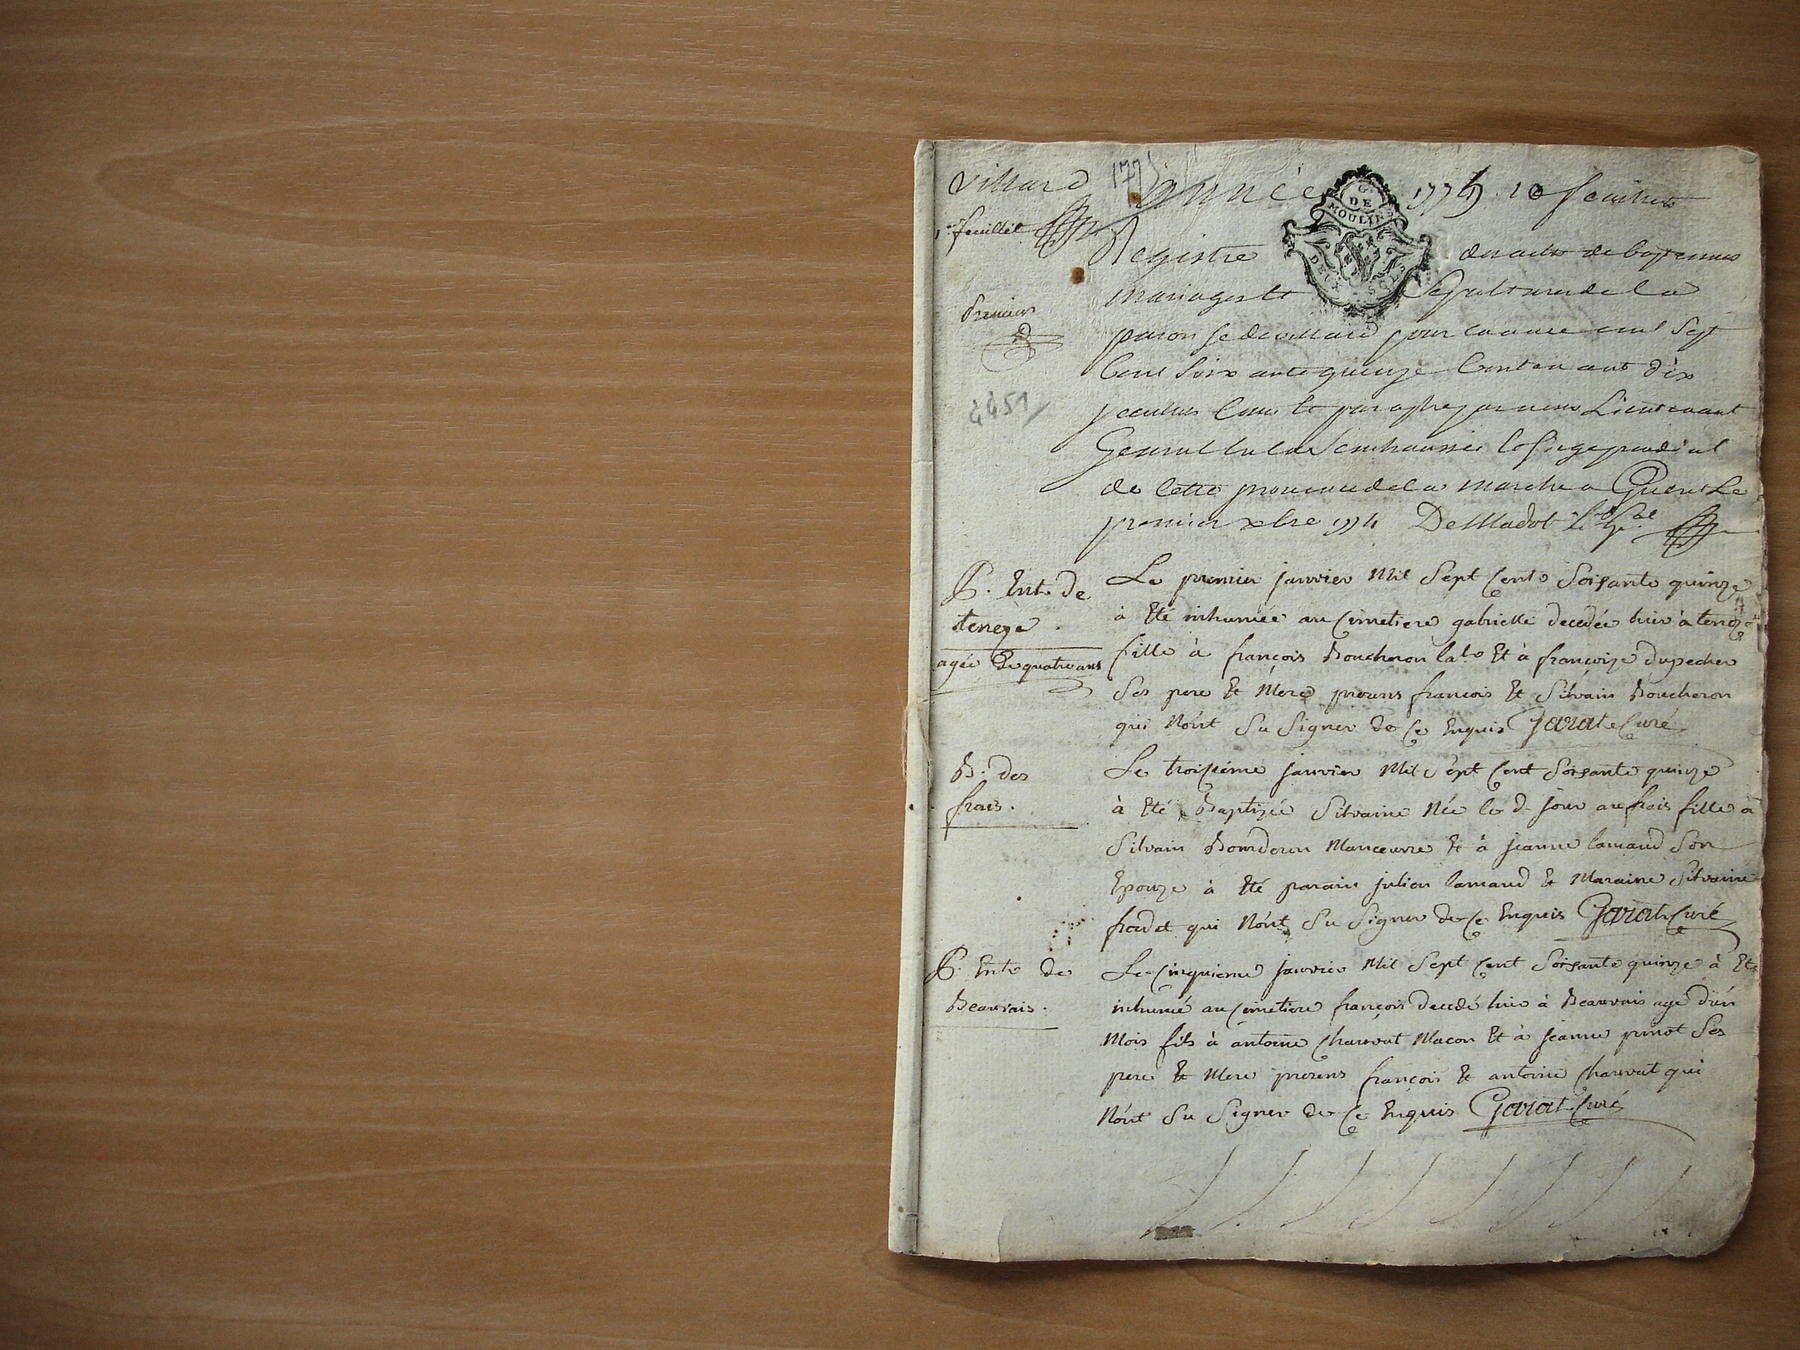 Villard 1775 année 1775 10 feuillets
1er feuillet
G. DE MOULINS
DEUX SOLS
Registre des actes de baptemes
mariages et Sepultures de la
Premier
paroisse de villard pour l'année mil Sept
Cent Soixante quinze Contenant dix
4451
feuillets Cotté et paraphez par nous Lieutenant
General en la Senechaussée et Siege presidial
de Cette province de la marche a Gueret Le
premier xbre 1774 DeMadot Lt Gal
S. Ent. de
teneze
agée de quatre ans
Le premier janvier Mil Sept Cent Soisante quinze
à Eté inhumée au Cimetiere gabrielle decedée hier à teneze
fille à françois Boucheron lab. Et à françoize dupecher
Ses pere Et Mere presens françois Et Silvain Boucheron
qui N'ont Su Signer de Ce Enquis Garat Curé
B. des
frais.
Le troisieme janvier Mil Sept Cent Soisante quinze
à Eté Baptizée Silvaine Née le d. jour au frais fille a
Silvain Manœuvre Et à jeanne lamaud Son
Epouze à Eté parain julien lamaud Et Maraine Silvaine
fradet qui N'ont Su Signer de Ce Enquis Garat Curé
S. Ent. de
Beauvais.
Le Cinquieme janvier Mil Sept Cent Soisante quinze à Eté
inhumé au Cimetiere françois decedé hier à Beauvais agé d'un
Mois fils à antoine Chauvat Macon Et à jeanne pinot Ses
pere Et Mere presens françois Et antoine Chauvat qui
N'ont Su Signer de Ce Enquis Garat Curé